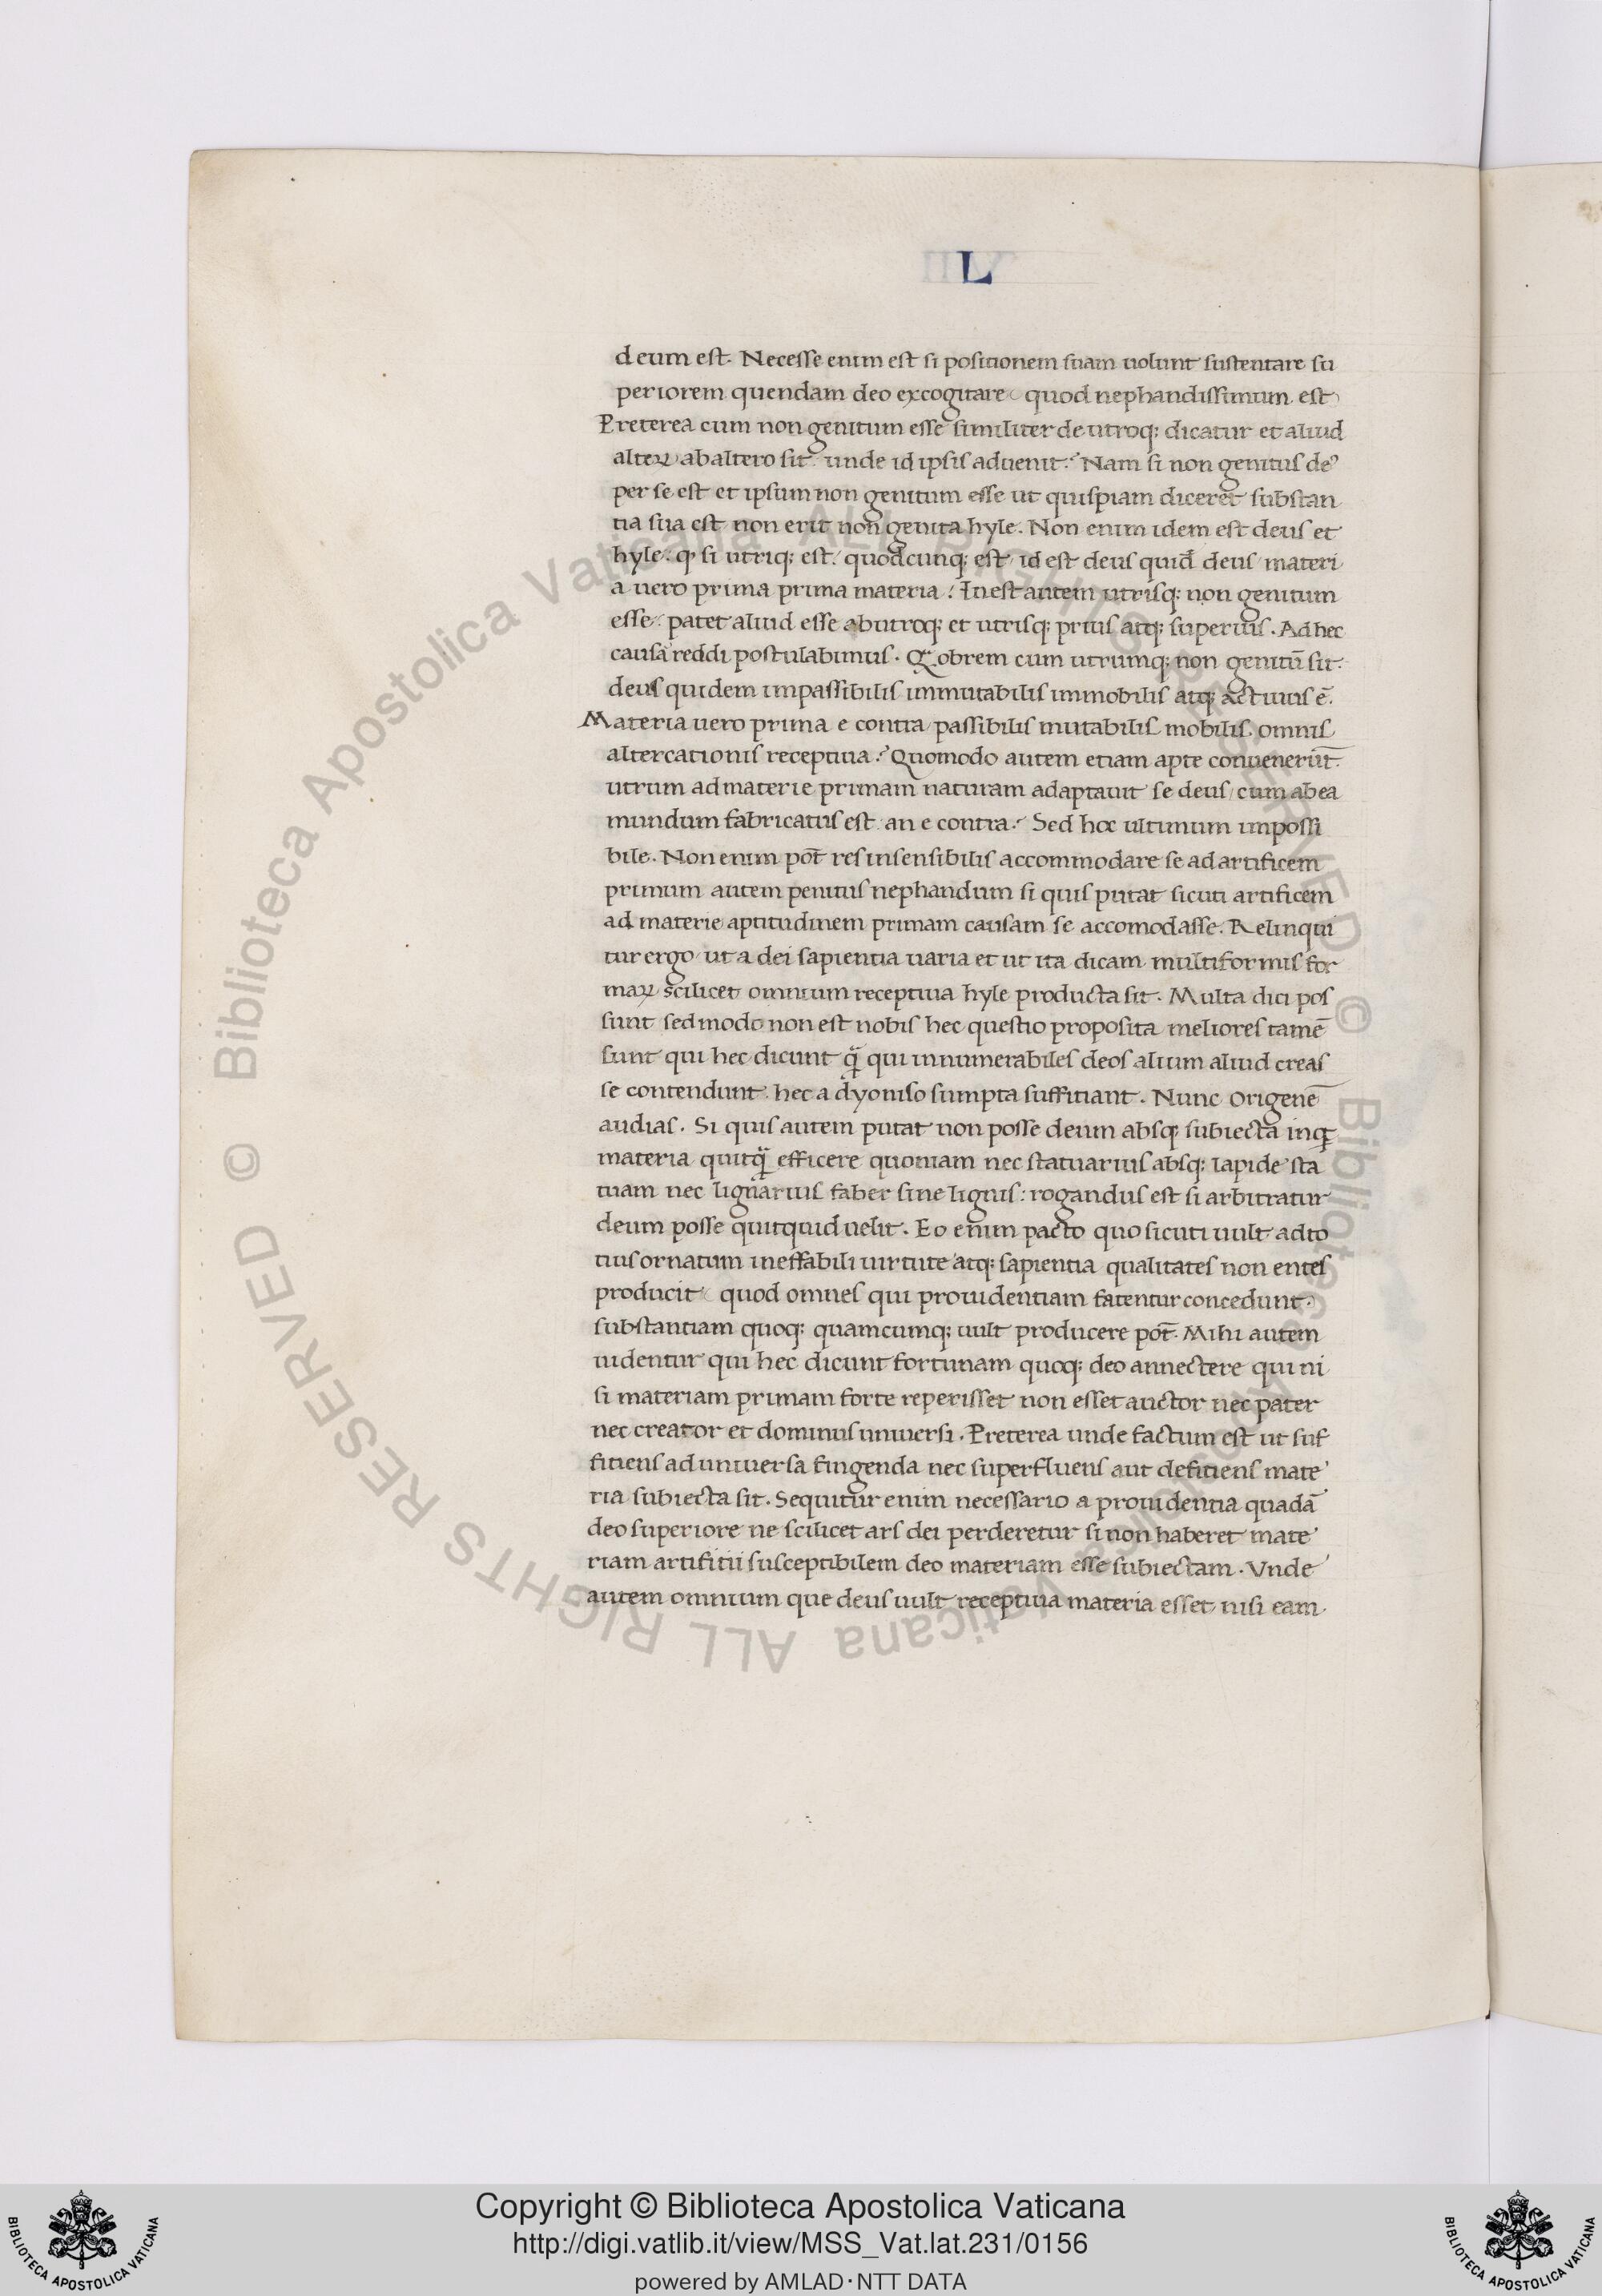 L
deum est. Necesse enim est si positionem suam uolunt sustentare su
periorem quendam deo excogitare quod nephandissimum est
Preterea cum non genitum esse similiter de utroq; dicatur et aliud
alteꝝ ab altero sit unde id ipsis aduenit? Nam si non genitus deꝰ
per se est et ipsum non genitum esse ut quispiam diceret substan
tia sua est non erit non genita hyle. Non enim idem est deus et
hyle: ꝙ si utriq; est quodcunq; est id est deus quid̄ deus materi
a uero prima prima materia? Inest autem utrisq; non genitum
esse: patet aliud esse ab utroq; et utrisq; prius atq; superius. Ad hec
causā reddi postulabimus. Qobrem cum utrumq; non genitū sit
deus quidem impassibilis immutabilis immobilis atq; actiuus ē.
Materia uero prima e contra passibilis mutabilis mobilis omnis
altercationis receptiua? Quomodo autem etiam apte conuenerūt
utrum ad materie primam naturam adaptauit se deus cum ab ea
mundum fabricatus est an e contra? Sed hoc ultimum impossi
bile. Non enim pōt res insensibilis accommodare se ad artificem
primum autem penitus nephandum si quis putat sicuti artificem
ad materie aptitudinem primam causam se accomodasse. Relinqui
tur ergo ut a dei sapientia uaria et ut ita dicam multiformis for
maꝝ scilicet omnium receptiua hyle producta sit. Multa dici pos
sunt sed modo non est nobis hec questio proposita meliores tamē
sunt qui hec dicunt ꝙ̃ qui innumerabiles deos alium aliud creas
se contendunt hec a dyoniso sumpta suffitiant. Nunc Origenē
audias. Si quis autem putat non posse deum absq; subiecta inq̃
materia quitq̃ efficere quoniam nec statuarius absq; lapide sta
tuam nec lignarius faber sine lignis: rogandus est si arbitratur
deum posse quitquid uelit. Eo enim pacto quo sicuti uult ad to
tius ornatum ineffabili uirtute atq; sapientia qualitates non entes
producit quod omnes qui prouidentiam fatentur concedunt.
substantiam quoq; quamcumq; uult producere pōt. Mihi autem
uidentur qui hec dicunt fortunam quoq; deo annectere qui ni
si materiam primam forte reperisset non esset auctor nec pater
nec creator et dominus uniuersi. Preterea unde factum est ut suf
fitiens ad uniuersa fingenda nec superfluens aut defitiens mate
ria subiecta sit. Sequitur enim necessario a prouidentia quadā
deo superiore ne scilicet ars dei perderetur si non haberet mate
riam artifitii susceptibilem deo materiam esse subiectam. Vnde
autem omnium que deus uult receptiua materia esset nisi eam
© Biblioteca Apostolica Vaticana ALL RIGHTS RESERVED
© Biblioteca Apostolica Vaticana ALL RIGHTS RESERVED
Copyright © Biblioteca Apostolica Vaticana
http://digi.vatlib.it/view/MSS_Vat.lat.231/0156
powered by AMLAD·NTT DATA
BIBLIOTECA APOSTOLICA VATICANA
BIBLIOTECA APOSTOLICA VATICANA